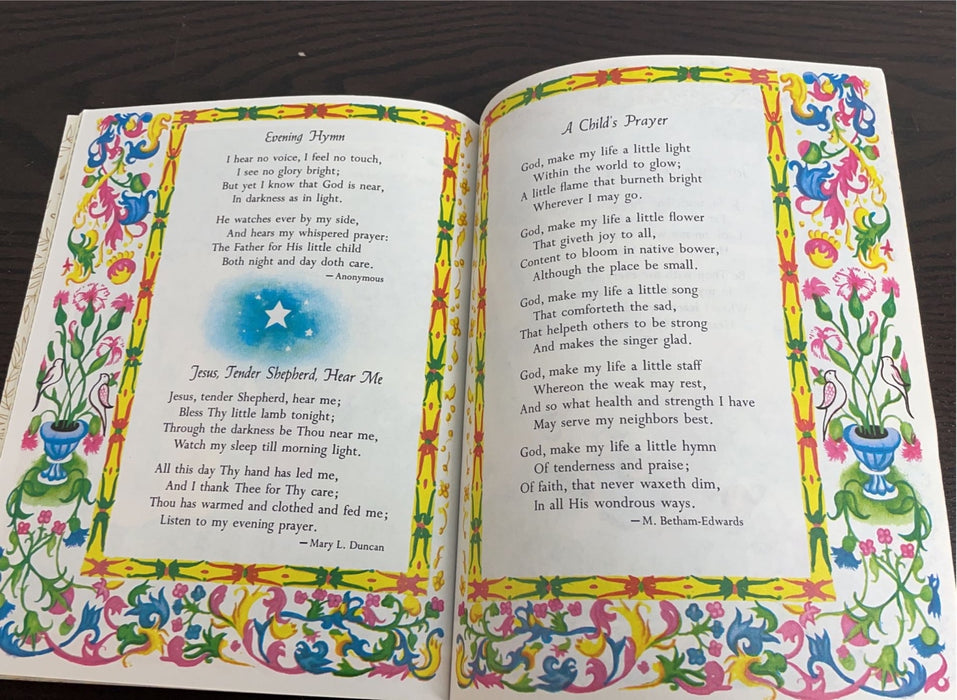 Evening Hymn
I hear no voice, I feel no touch,
I see no glory bright;
But yet I know that God is near,
In darkness as in light.
He watches ever by my side,
And hears my whispered prayer:
The Father for His little child
Both night and day doth care.
—Anonymous
Jesus, Tender Shepherd, Hear Me
Jesus, tender Shepherd, hear me;
Bless Thy little lamb tonight;
Through the darkness be Thou near me,
Watch my sleep till morning light.
All this day Thy hand has led me,
And I thank Thee for Thy care;
Thou has warmed and clothed and fed me;
Listen to my evening prayer.
—Mary L. Duncan
A Child's Prayer
God, make my life a little light
Within the world to glow;
A little flame that burneth bright
Wherever I may go.
God, make my life a little flower
That giveth joy to all,
Content to bloom in native bower,
Although the place be small.
God, make my life a little song
That comforteth the sad,
That helpeth others to be strong
And makes the singer glad.
God, make my life a little staff
Whereon the weak may rest,
And so what health and strength I have
May serve my neighbors best.
God, make my life a little hymn
Of tenderness and praise;
Of faith, that never waxeth dim,
In all His wondrous ways.
—M. Betham-Edwards